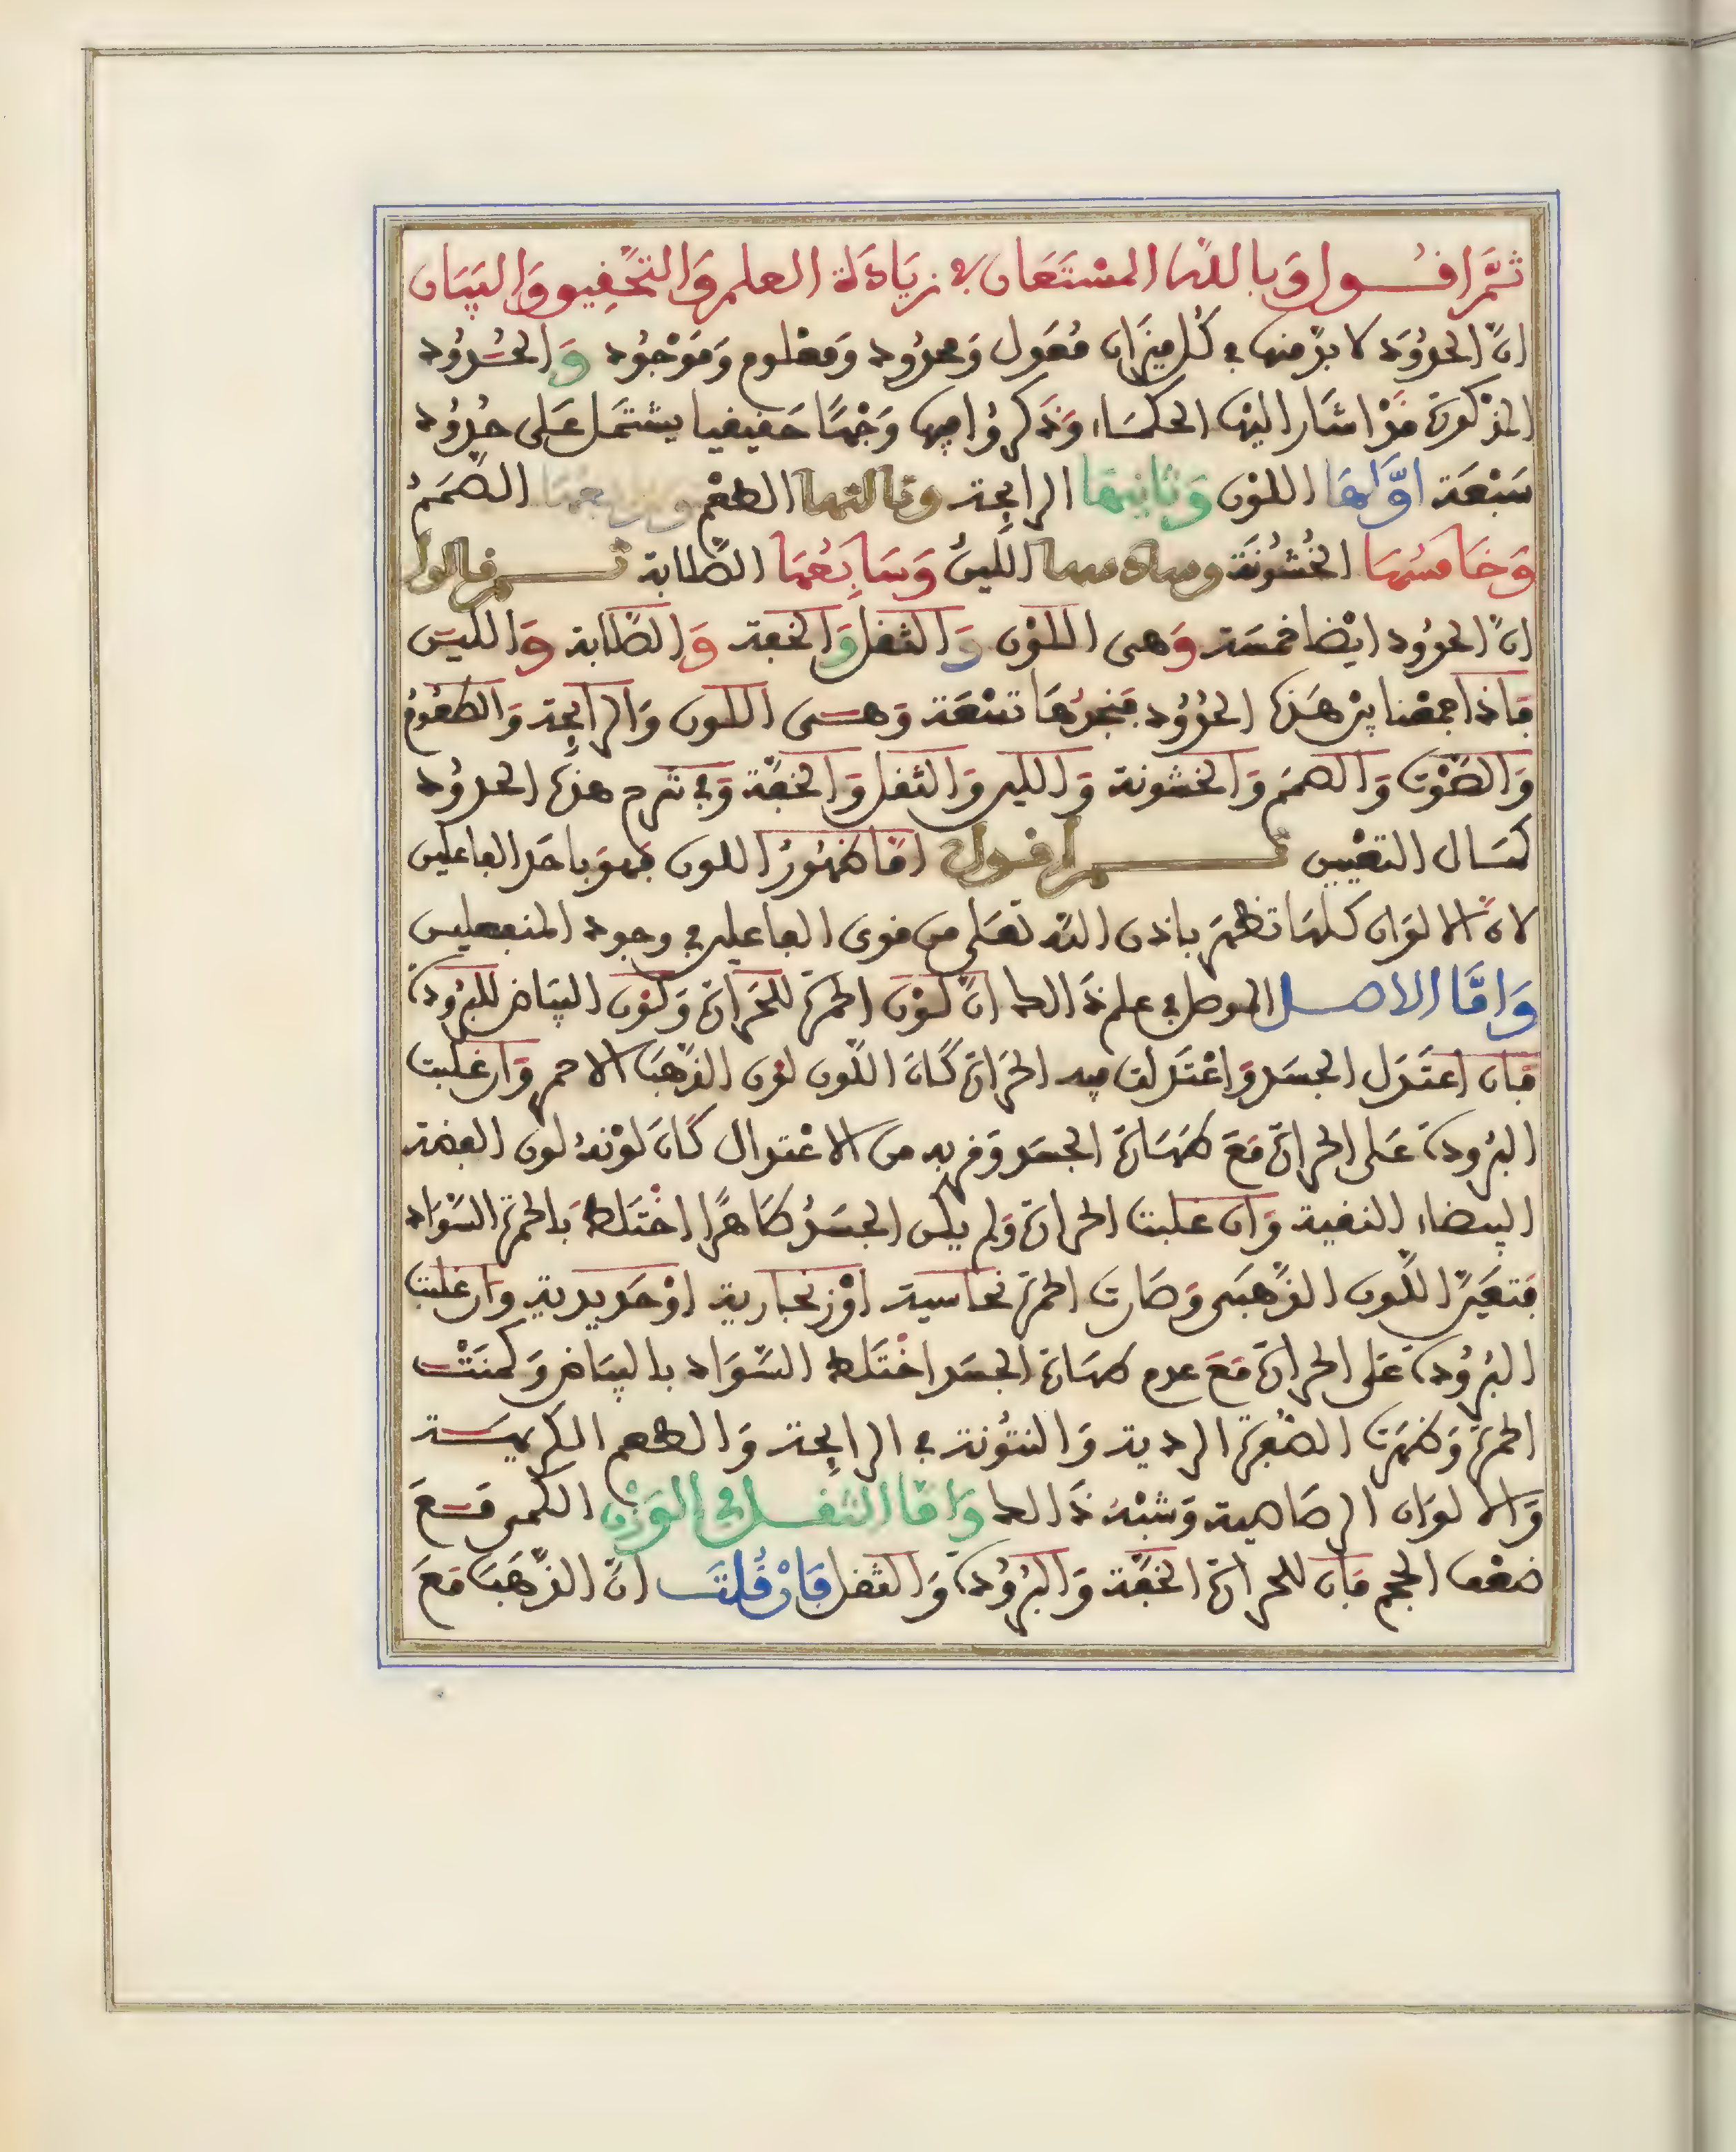 ثمَّ اقُول وَبالله المسْتَعَان في زيَادَة العلم وَالتحَّقِيق وَالبَيَان
انَّ الحدُوَد لا بدَّ منها في كُل ميزَان مُعَوّل وَمحدُود وَمعْلوم وَمَوْجُود وَالحُدُود
المذكورَة قَدْ اشَار اليْهَا الحكمَاء وَذَكرُوا فيها وَجْهًا حَقيقيا يشتمَل عَلى حُدُود
سَبْعَة اوَّلهَا اللوْن وَثانيهَا الرايحِة وثالثها الطعْم ورابعهَا الصَّمَمُ
وَخَامسُهَا الخُشُونَة وسادسها اللّينُ وَسَابِعُهَا الصَّلابة ثم قالوا
انَّ الحدُود ايْضا خمسَة وَهى اللوْن وَالثقل وَالخفة وَالصَّلابة وَاللينَ
فاذا جمعْنا بيْن هَذه الحدُود فنجدُهَا تسْعَة وَهى اللون وَالرايحِة وَالطعُوم
وَالصَّوْت وَالصمَم وَالخشونة وَاللين وَالثقل وَالخفَّة وَفي شرح هذه الحدُود
كمَال التعْيين ثم اقول امَّا ظهُورُ اللون فهوَ باحَد الفاعلين
لانَّ الالوَان كلهَا تظهَر باذن الله تعَلى من قوى الفاعلين في وجود المنفعلين
وَامَّا الاصل الموصل في علم ذَالك انَّ لوْن الحمرَة للحَرَارَة وَلوْن البيَاض للبرُودَة
فان اعتَدَل الجسَد وَاعْتدَلت فيه الحرَارَة كانَ اللّون لوْن الذهَب الاحمر وَان غلبت
البرُودة عَلى الحرارَة مَعَ طهَارَة الجسَد وَقربه من الاعْتدال كانَ لوْنهُ لون الفضة
البيضاء النقية وَان غلبت الحرارَة وَلم يكن الجسَدُ طاهرًا اختَلط بالحمرَة السّوَاد
فتغيَّر اللّون الذّهَبى وَصَارت الحمرَة نحاسية اوْ زنجارية اوْ حَديدية وَان غلبت
البرُودَة عَلى الحرارَة مَعَ عدم طهَارَة الجسَد اخْتَلط السَّوَاد بالبيَاض وَكمنَتْ
الحمرَة وَظهَرت الصّفرَة الردية وَالنتُونة في الرايحِة وَالطعم الكريه
وَالالوَان الرصَاصية وَشبْهُ ذَالك وَامَّا الثقل في الوَزْن الكمى مَعَ
ضعْف الحجم فان للحرارَة الخفَّة وَالبرُودَة وَالثقل فَانْ قُلتَ انَّ الذّهَب مَعَ